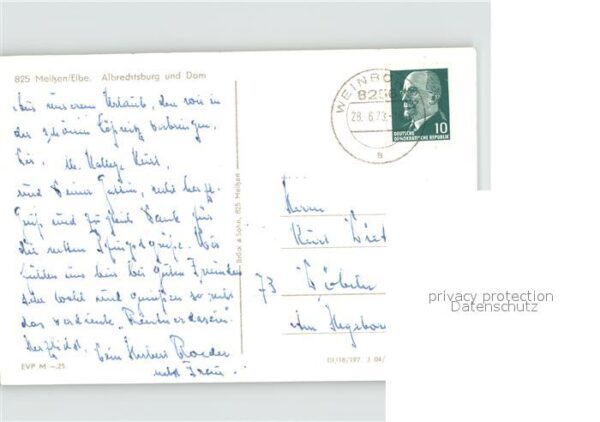 825 Meißen/Elbe. Albrechtsburg und Dom
Aus unserem Urlaub, den wir in
der schönen Lößnitz verbringen,
Dir, lb. Kollege Kurt,
und Deiner Gattin, recht herzl.
Grüße und zugleich Dank für
die netten Pfingstgrüße. Wir
fühlen uns hier bei guten Freunden
sehr wohl und genießen so recht
das verdiente „Rentnerdasein".
Herzlichst Dein Herbert Roeder
nebst Frau.
EVP M -.25
Brück & Sohn, 825 Meißen
WEINBÖ
8256
28.6.73
a
DEUTSCHE
DEMOKRATISCHE REPUBLIK
10
Herrn
Kurt
73 Döbeln
Am
III/18/197 J 04/
privacy protection
Datenschutz